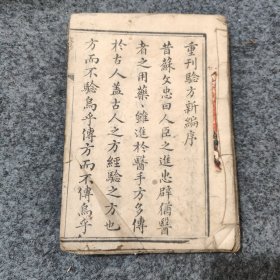 重刊驗方新編序
昔蘇文忠曰人臣之進忠辟猶醫
者之用藥雖進於醫手方多傳
於古人蓋古人之方經驗之方也
方而不驗烏乎傳方而不傳烏乎